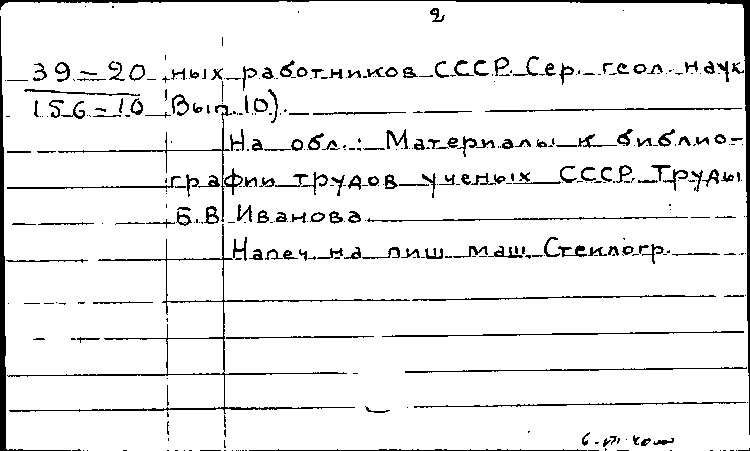 2
39-20 ных работников СССР. Сер. геол. наук
156-10 Вып. 10).
На обл.: Материалы к библио-
графии трудов ученых СССР. Труды
Б.В. Иванова.
Напеч. на пиш. маш. Стеклогр.